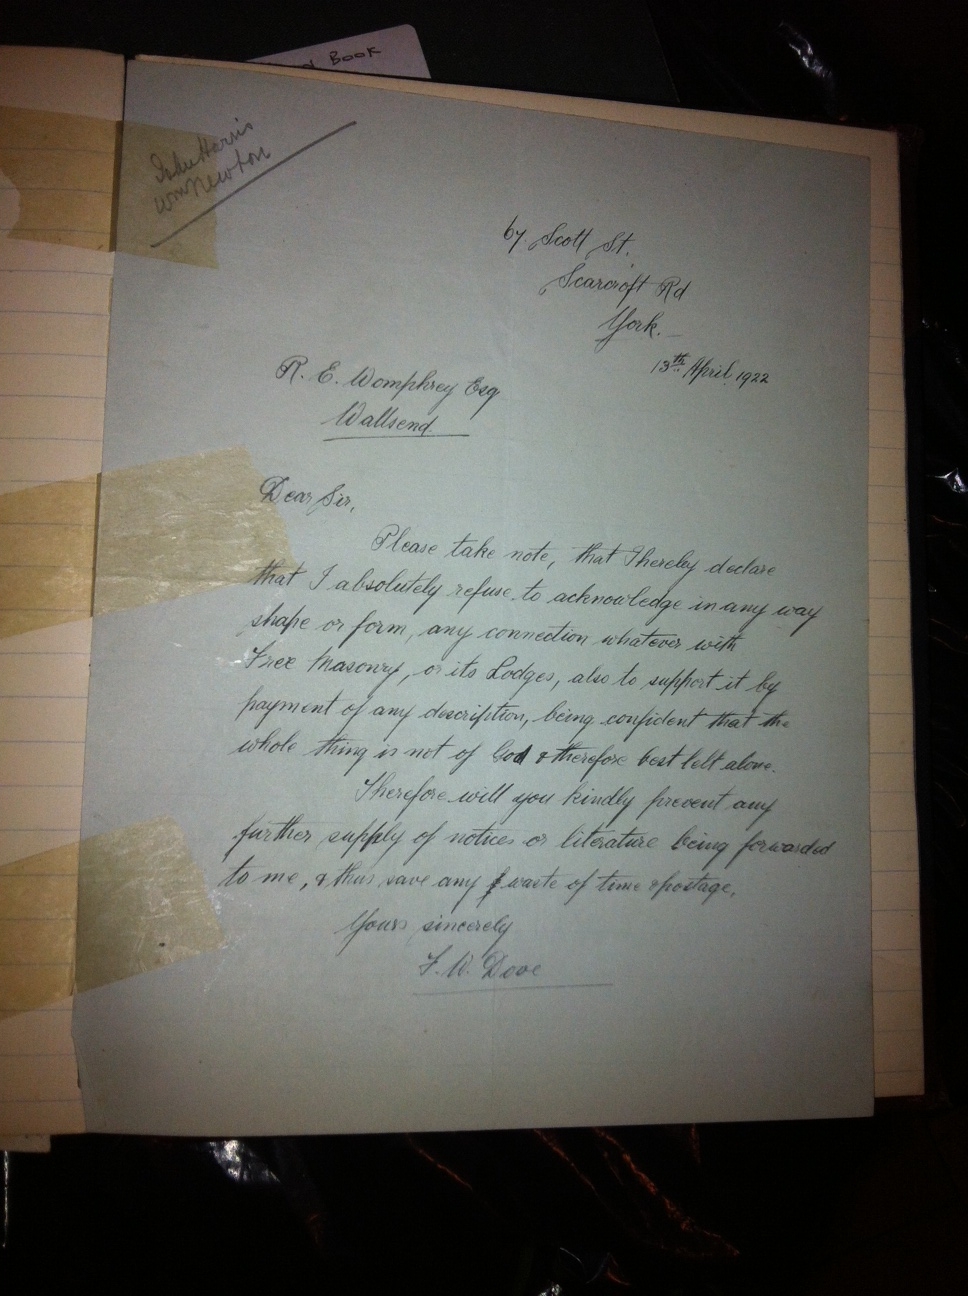 Book
John Harris
Wm Newton
67 Scott St.
Scarcroft Rd
York.
13th April 1922
R. E. Womphrey Esq
Wallsend
Dear Sir,
Please take note, that I hereby declare
that I absolutely refuse to acknowledge in any way
shape or form, any connection whatever with
Free Masonry, or its Lodges, also to support it by
payment of any description, being confident that the
whole thing is not of God & therefore best left alone.
Therefore will you kindly prevent any
further supply of notices or literature being forwarded
to me, & thus save any waste of time & postage.
Yours sincerely
F. W. Dove